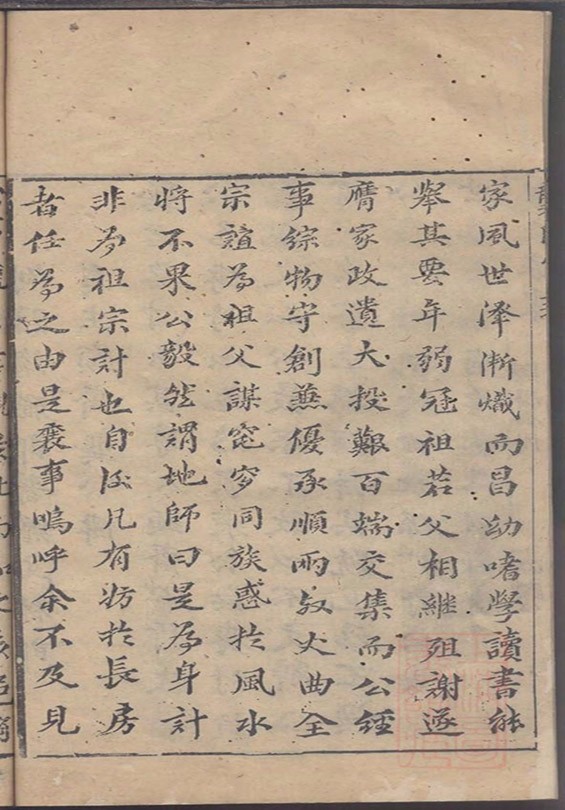 家風世澤漸熾而昌幼嗜學讀書能
舉其要年弱冠祖若父相繼殂謝遂
膺家政遺大投艱百端交集而公經
事綜物守創兼優承順兩
曲全
宗誼為祖父謀窀穸同族惑於風水
將不果公毅然謂地師曰是為身計
非為祖宗計也自後凡有妨於長房
者任為之由是襄事嗚呼余不及見